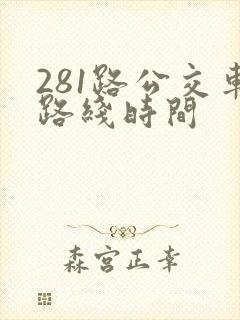 281路公交車
路綫時間
森宮正幸